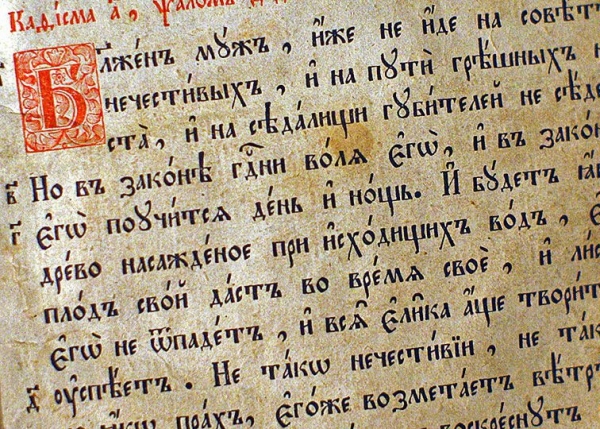 Каді́сма а҃, Ѱало́мъ
Бл҃же́нъ мꙋ́жъ, и҆́же не и҆́де на совѣ́тъ
нечести́выхъ, и҆ на пꙋтѝ грѣ́шныхъ
ста̀, и҆ на сѣда́лищи гꙋби́телей не сѣ́де
в҃ Но въ зако́нѣ гдⷭ҇ни во́лѧ є҆гѡ̀, и҆ въ зако́нѣ
г҃ є҆гѡ̀ поꙋчи́тсѧ де́нь и҆ но́щь. И҆ бꙋ́детъ
дре́во насажде́ное при и҆схо́дищихъ во́дъ,
пло́дъ сво́й да́стъ во вре́мѧ своѐ, и҆
є҆гѡ̀ не ѿпаде́тъ, и҆ всѧ̑ є҆ли̑ка а҆́ще твори́тъ
д҃ оу҆спѣ́етъ. Не та́кѡ нечести́вїи, не та́кѡ
пра́хъ, є҆го́же возмета́етъ вѣ́тръ
воскрⷭ҇нꙋтъ